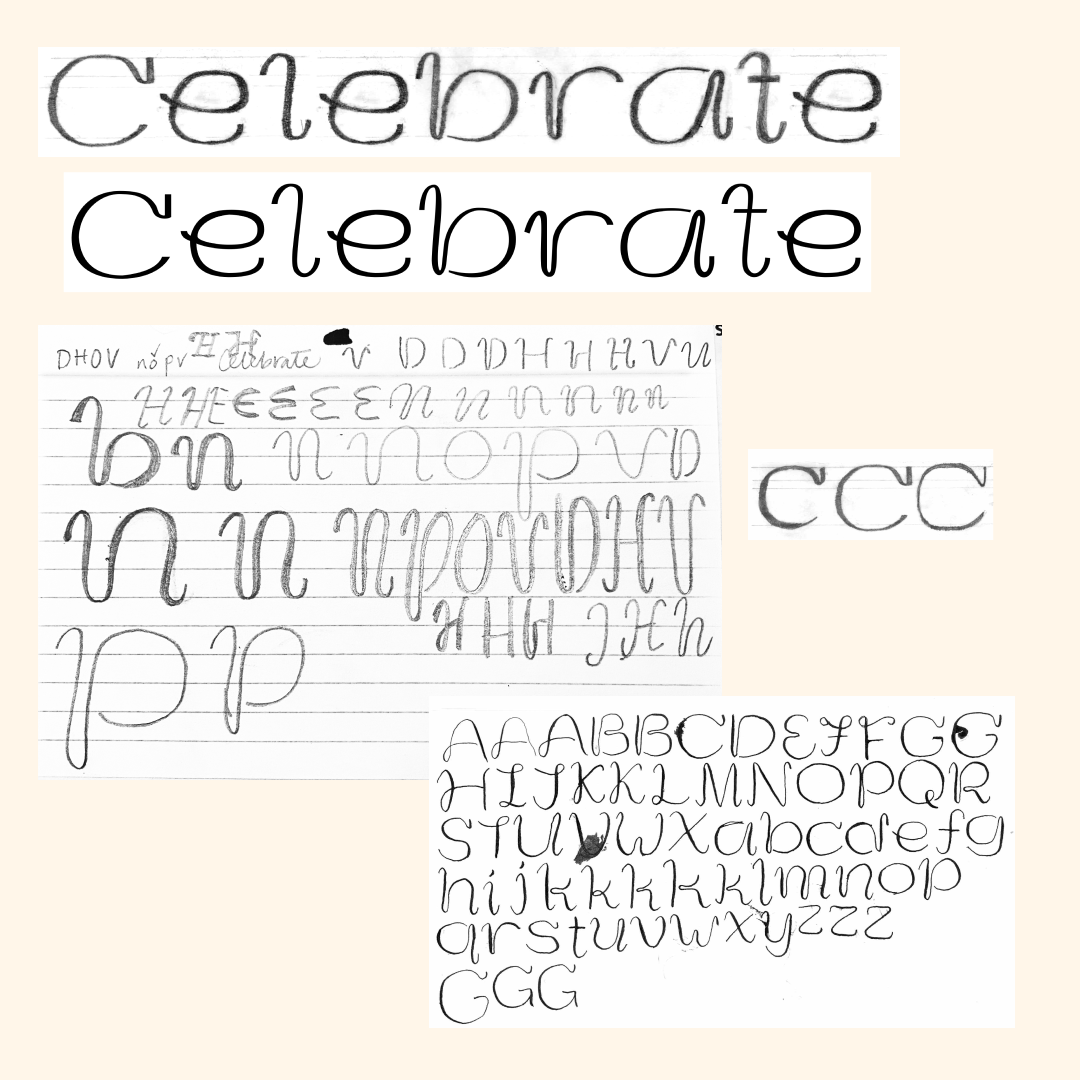 Celebrate
Celebrate
DHOV nopv H H Celebrate V D D D H H H V U
H H H E E E E E n n n n n n
b n n n o p v D
n n n p o v D H V
H H H J H h
p p
C C C
A A A B B C D E F F G G
H I J K K L M N O P Q R
S T U V W X a b c d e f g
h i j k k k k k l m n o p
q r s t u v w x y z z z
G G G